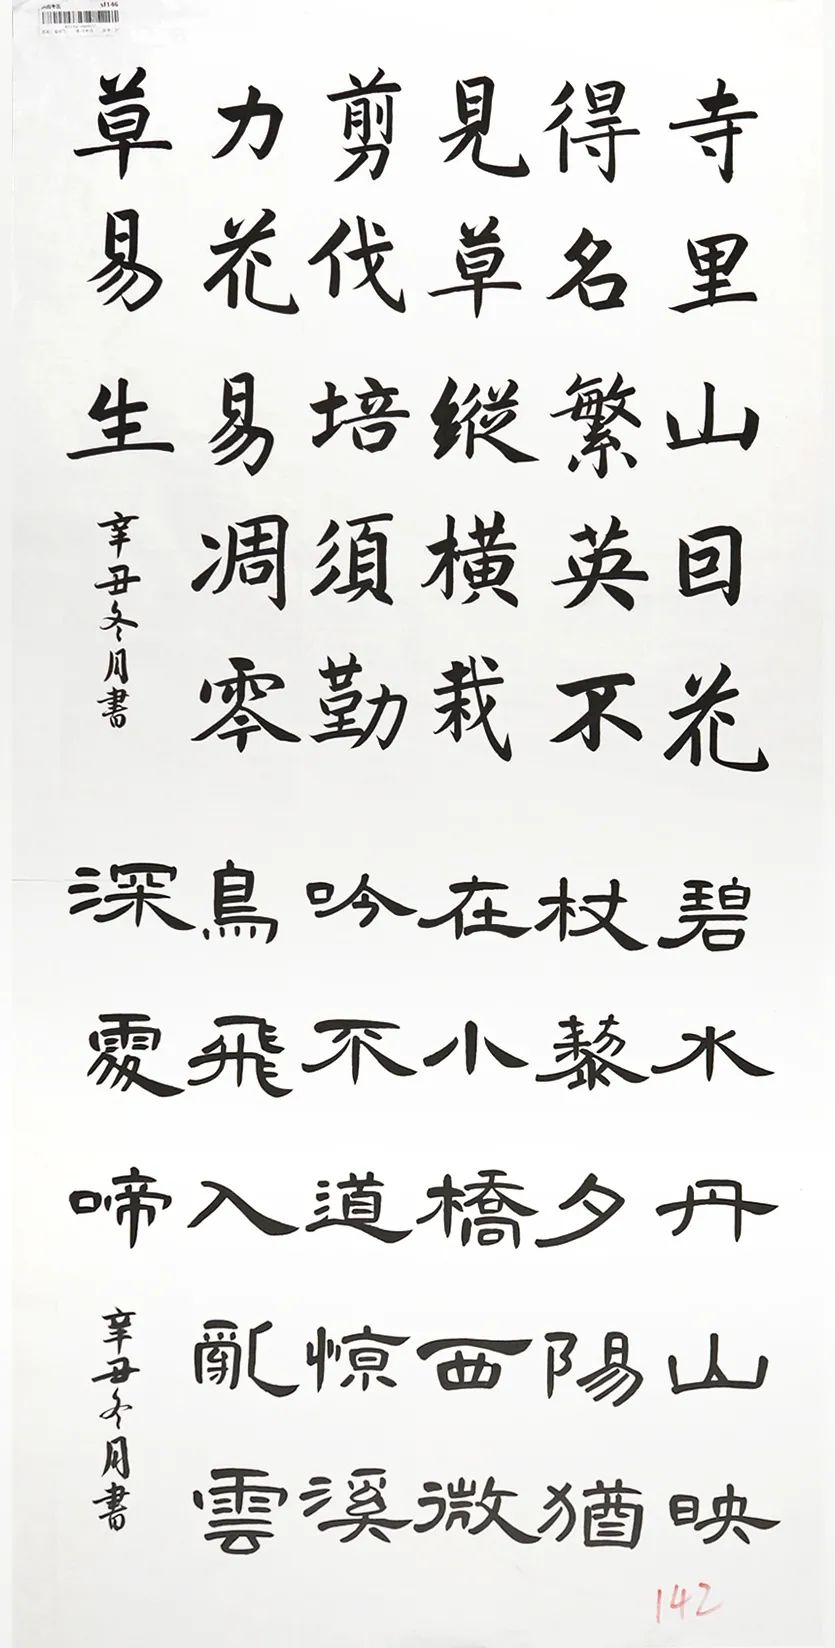 寺里山囙花
得名繁英不
見草縱橫栽
剪伐培須勤
力花易凋零
草易生
辛丑冬月書
碧水丹山映
杖藜夕陽猶
在小橋西微
吟不道惊溪
鳥飛入亂雲
深處啼
辛丑冬月書
142